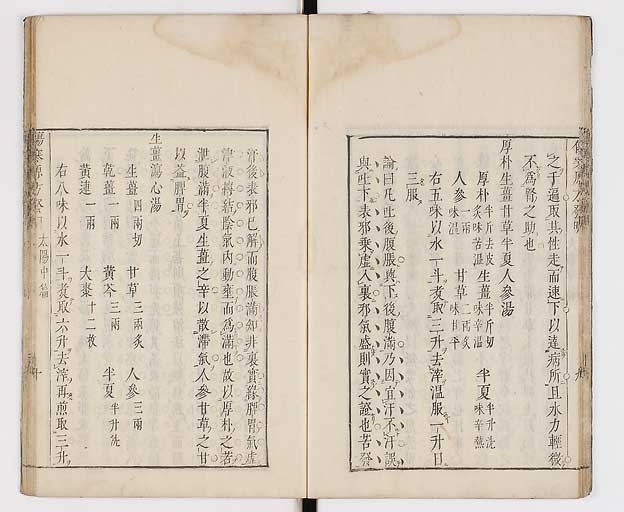 之千遍取其性走而速下以達病所且水力輕微
不為腎之助也
厚朴生薑甘草半夏人參湯
厚朴半斤去皮炙味苦温 生薑半斤切味辛温 半夏半升洗味辛熱
人參味温 甘草二兩炙味甘平
右五味以水一斗煮取三升去滓温服一升日
三服
論曰凡吐後腹脹與下後腹滿乃因宜汗不汗誤
與吐下表邪乗虛入裏邪氣盛則實之證也若發
汗後表邪已解而腹脹滿知非裏實緣脾胃氣虛
陰氣内動壅而為滿也故以厚朴之苦
泄腹滿半夏生薑之辛以散滯氣人參甘草之甘
以益脾胃
生薑瀉心湯
生薑四兩切 甘草三兩炙 人參三兩
乾薑一兩 黄芩三兩 半夏半升洗
黄連一兩 大棗十二枚
右八味以水一斗煮取六升去滓再煎取三升
太陽中篇